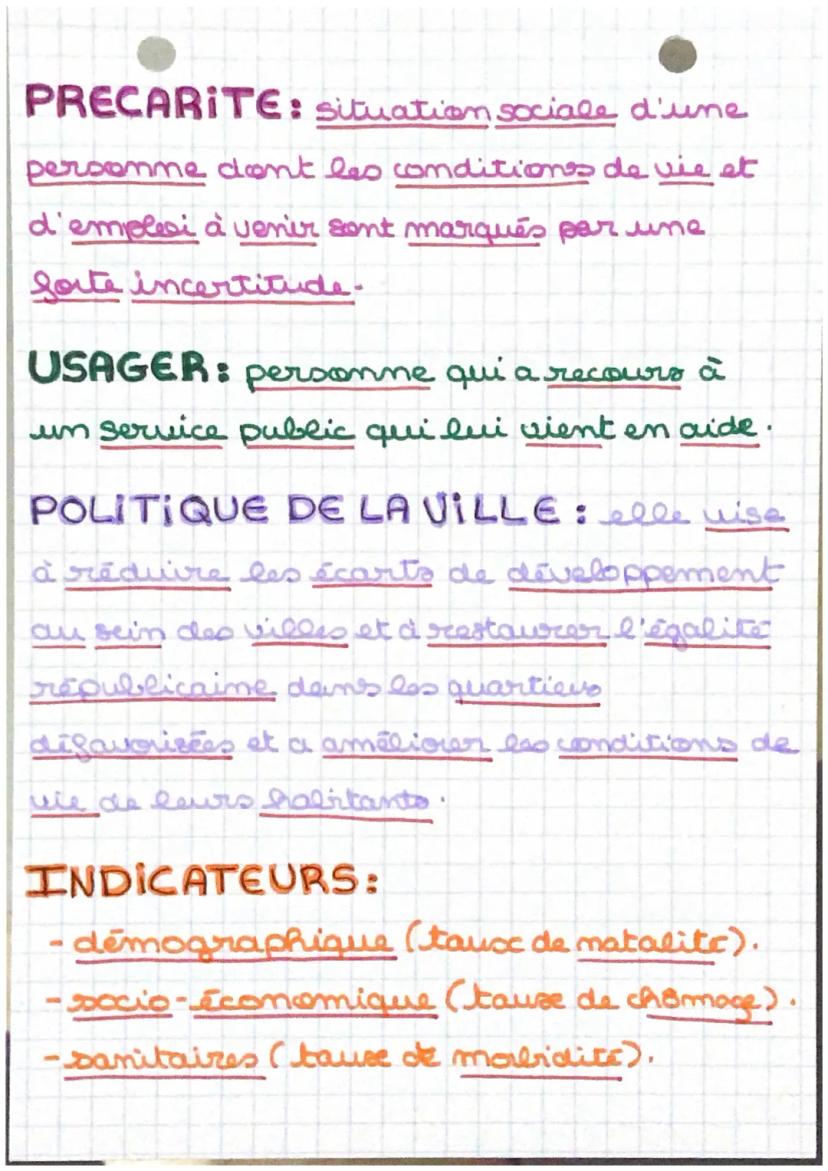 PRECARiTE : situation sociale d'une
personne dont les conditions de vie et
d'emploi à venir sont marqués par une
forte incertitude.
USAGER : personne qui a recours à
un service public qui lui vient en aide.
POLiTiQUE DE LA ViLLE : elle vise
à réduire les écarts de développement
au sein des villes et à restaurer l'égalité
républicaine dans les quartiers
défavorisées et a améliorer les conditions de
vie de leurs habitants.
INDiCATEURS :
- démographique (taux de natalité).
- socio-économique (taux de chômage).
- sanitaires (taux de morbidité).